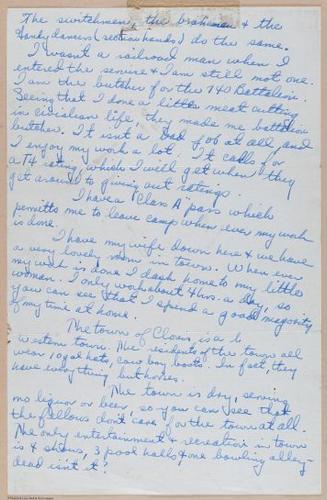 The switchmen, the brakeman & the
Gandy dancers (section hands) do the same.
I wasn't a railroad man when I
entered the service & I am still not one.
I am the butcher for the 740 Battalion.
Seeing that I done a little meat cutting
in civilian life, they made me battalion
butcher. It isn't a bad job at all and
I enjoy my work a lot. It calls for
a T4 rating, which I will get when they
get around to giving out ratings.
I have a "Class A" pass which
permitts me to leave camp when ever my work
is done.
I have my wife down here & we have
a very lovely room in town. When ever
my work is done I dash home to my little
woman. I only work about 4 hrs. a day, so
you can see that I spend a good majority
of my time at home.
The town of Clovis, is a
Western town. The residents of the town all
wear 10 gal hats, cow boy boots. In fact, they
have everything but horses.
The town is dry, serving
no liquor or beer, so you can see that
the fellows don't care for the town at all.
The only entertainment & recreation in town
is 4 shows, 3 pool halls & one bowling alley-
dead isn't it?